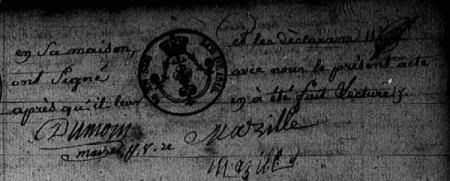 en sa maison, et les déclarans
ont Signé avec nous le présent acte
après qu'il leur en à été fait Lecture
Dumont Marzille
maire
Mazille